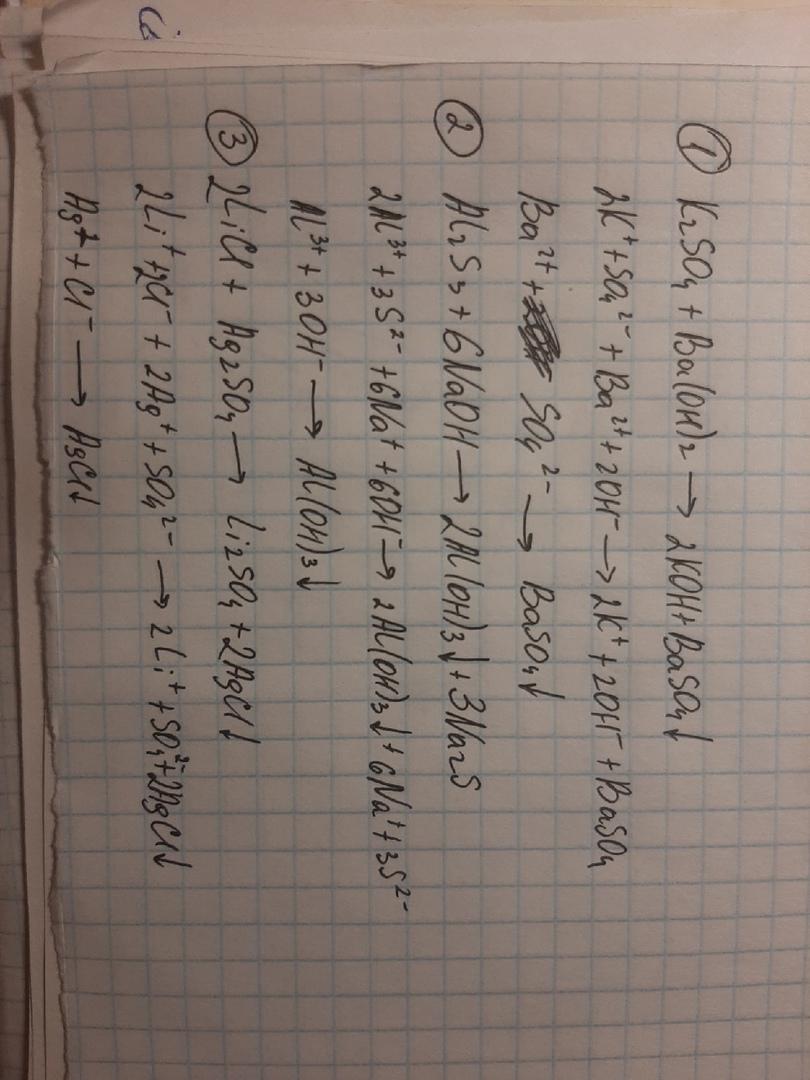 ① K₂SO₄ + Ba(OH)₂ → 2KOH + BaSO₄↓
2K⁺ + SO₄²⁻ + Ba²⁺ + 2OH⁻ → 2K⁺ + 2OH⁻ + BaSO₄
Ba²⁺ + SO₄²⁻ → BaSO₄↓
② Al₂S₃ + 6NaOH → 2Al(OH)₃↓ + 3Na₂S
2Al³⁺ + 3S²⁻ + 6Na⁺ + 6OH⁻ → 2Al(OH)₃↓ + 6Na⁺ + 3S²⁻
Al³⁺ + 3OH⁻ → Al(OH)₃↓
③ 2LiCl + Ag₂SO₄ → Li₂SO₄ + 2AgCl↓
2Li⁺ + 2Cl⁻ + 2Ag⁺ + SO₄²⁻ → 2Li⁺ + SO₄²⁻ + 2AgCl↓
Ag⁺ + Cl⁻ → AgCl↓